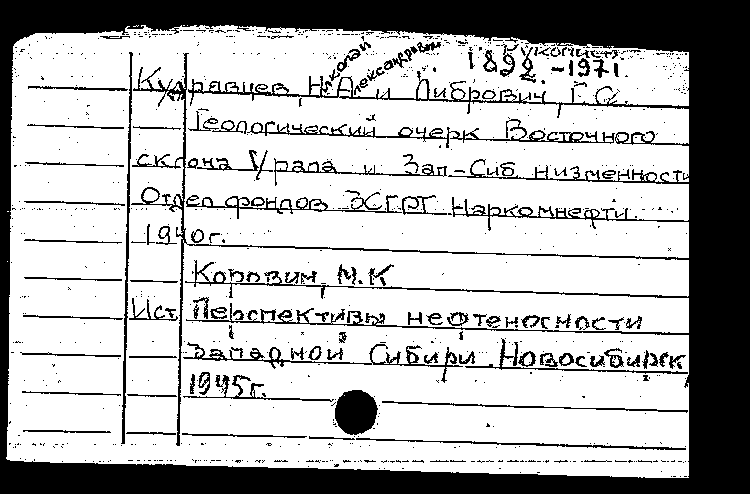 Рукопись
Николай Александрович 1892.-1971.
Кудрявцев, Н.А. и Либрович, Г.С.
Геологический очерк Восточного
склона Урала и Зап-Сиб низменности
Отдел фондов ЗСГРТ Наркомнефти.
1940г.
Коровин, М.К
Ист. Перспективы нефтеносности
Западной Сибири. Новосибирск,
1945г.